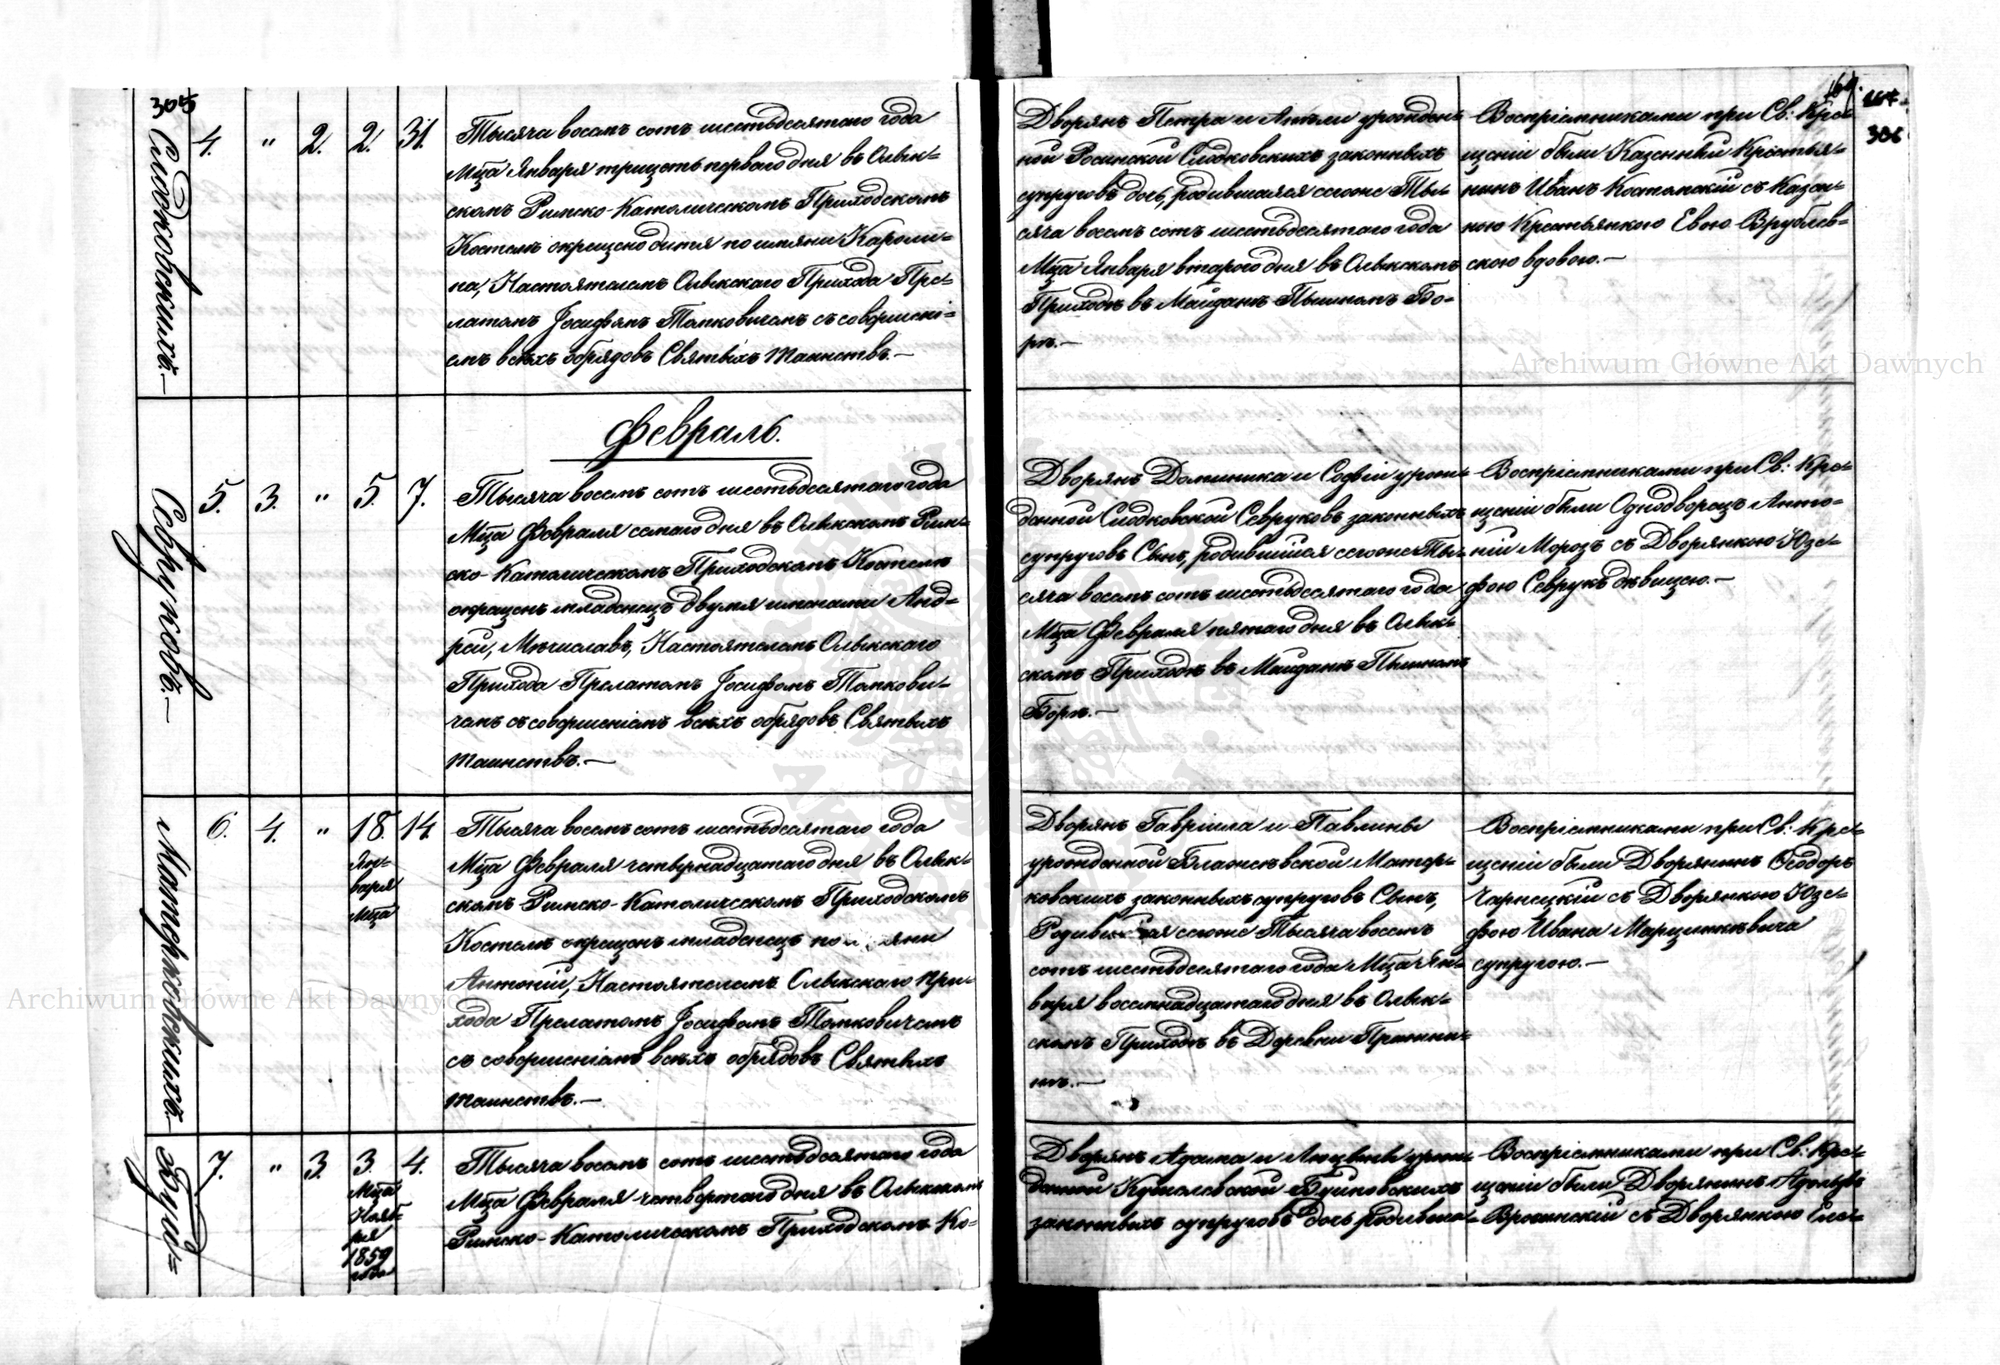 305
Сгодковскихъ.—
4. " 2. 2. 31.
Тысяча восемь сотъ шестьдесятаго года
Мца Января тридцать перваго дня въ Олык-
скомъ Римско-Католическомъ Приходскомъ
Костелѣ окрещено дитя по имяни Кароли-
на, Настоятелемъ Олыкскаго Прихода Пре-
латомъ Іосифомъ Томковичемъ съ совершені-
емъ всѣхъ обрядовъ Святыхъ таинствъ.—
Февраль.
Севруковъ.—
5. 3. " 5. 7.
Тысяча восемь сотъ шестьдесятаго года
Мца Февраля семаго дня въ Олыкскомъ Рим-
ско-Католическомъ Приходскомъ Костелѣ
окрещенъ младенецъ двумя именами Анд-
рей, Мѣчиславъ, Настоятелемъ Олыкскаго
Прихода Прелатомъ Іосифомъ Томкови-
чемъ съ совершеніемъ всѣхъ обрядовъ Святыхъ
таинствъ.—
Матерковскихъ.
6. 4. " 18. 14.
Ян-
варя
Мца
Тысяча восемь сотъ шестьдесятаго года
Мца Февраля четвернадцатаго дня въ Олык-
скомъ Римско-Католическомъ Приходскомъ
Костелѣ окрещенъ младенецъ по имяни
Антоній, Настоятелемъ Олыкскаго При-
хода Прелатомъ Іосифомъ Томковичемъ
съ совершеніемъ всѣхъ обрядовъ Святыхъ
таинствъ.—
Буй=
7. " 3. 3. 4.
Мца
Нояб-
ря
1859
года
Тысяча восемь сотъ шестьдесятаго года
Мца Февраля четвертаго дня въ Олыкскомъ
Римско-Католическомъ Приходскомъ Ко-
169.
306
Дворянъ Петра и Анели урожден-
ной Росинской Сгодковскихъ законныхъ
супруговъ дочь, родившаяся сегоже Ты-
сяча восемь сотъ шестьдесятаго года
Мца Января втораго дня въ Олыкскомъ
Приходѣ въ Майданѣ Пышномъ Бо-
рѣ.—
Воспріемниками при Св: Кре-
щеніи были Казенный Крестья-
нинъ Иванъ Костомскій съ Казен-
ною Крестьянкою Евою Врублев-
скою вдовою.—
Дворянъ Доминика и Софіи урож-
денной Сгодковской Севруковъ законныхъ
супруговъ Сынъ, родившійся сегоже Ты-
сяча восемь сотъ шестьдесятаго года
Мца Февраля пятаго дня въ Олык-
скомъ Приходѣ въ Майданѣ Пышномъ
Борѣ.—
Воспріемниками при Св: Кре-
щеніи были Однодворецъ Анто-
ній Морозъ съ Дворянкою Юзе-
фою Севрукъ дѣвицею.—
Дворянъ Гавріила и Павлины
урожденной Блажеѣвской Матер-
ковскихъ законныхъ супруговъ Сынъ,
сегоже Тысяча восемь
сотъ шестьдесятаго года Мца Ян-
варя восемнадцатаго дня въ Олык-
скомъ Приходѣ въ Деревни
Воспріемниками при Св: Кре-
щеніи были Дворянинъ Ѳеодоръ
Чарнецкій съ Дворянкою Юзе-
фою Ивана Марцинкѣвича
супругою.—
Дворянъ Адама и Люцыны урож-
денной Буйновскихъ
законныхъ супруговъ дочь, родивша-
Воспріемниками при Св: Кре-
щеніи были Дворянинъ Адольфъ
съ Дворянкою
Archiwum Główne Akt Dawnych
Archiwum Główne Akt Dawnych